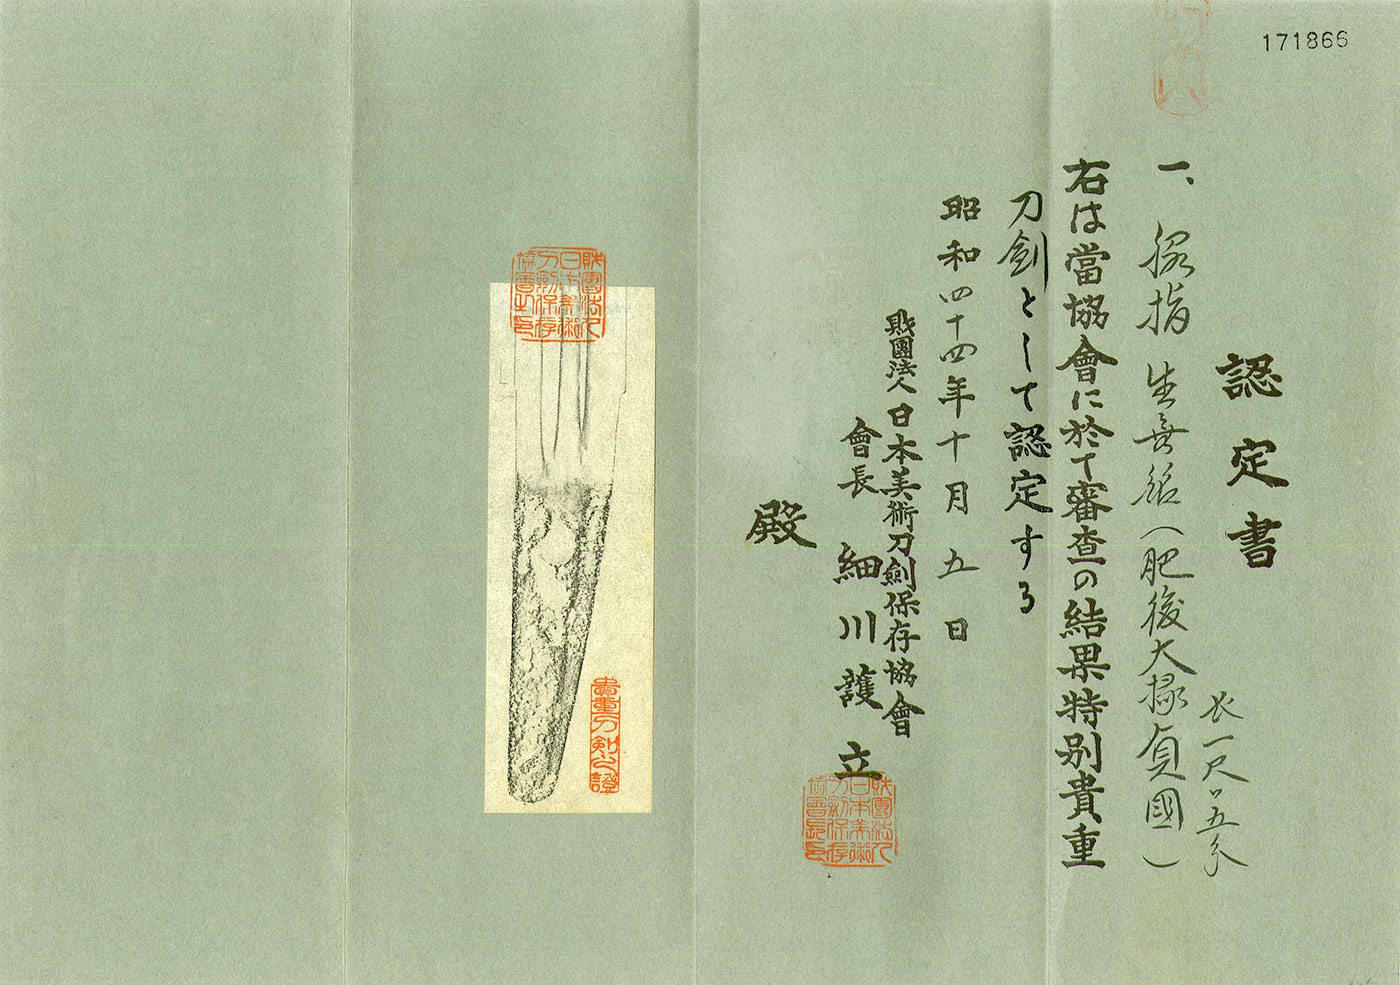 171866
認定書
一、脇指 生無銘(肥後大掾貞國)
長一尺〇五分
右は當協會に於て審査の結果特別貴重
刀劍として認定する
昭和四十四年十月五日
財團法人日本美術刀劍保存協會
會長 細川護立
殿
財團法人日本美術刀劍保存協會長印
財團法人日本美術刀劍保存協會之印
貴重刀劍之證